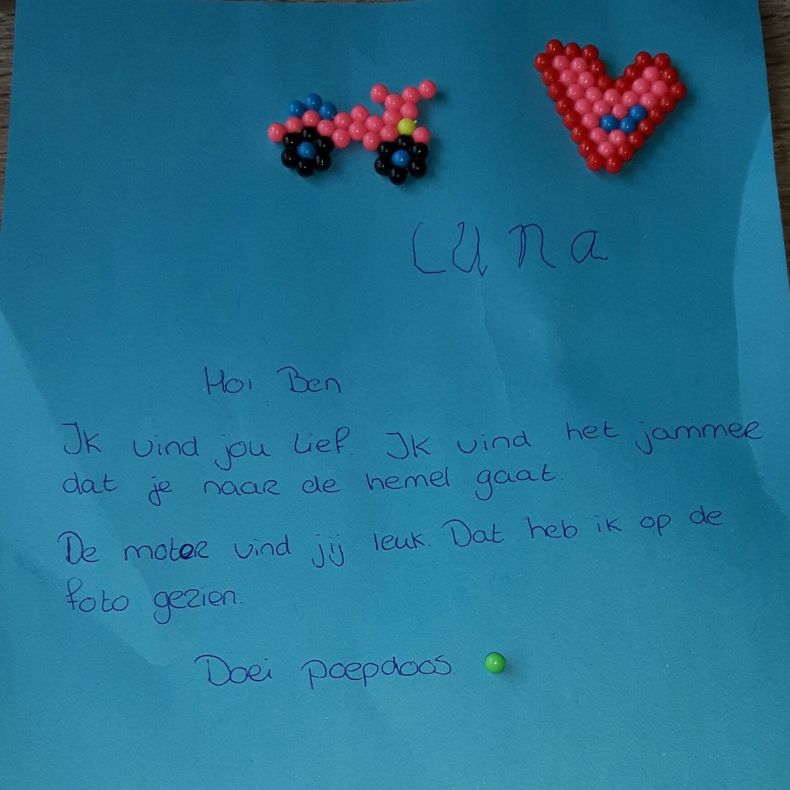 Luna
Hoi Ben
Ik vind jou lief. Ik vind het jammer
dat je naar de hemel gaat.
De moter vind jij leuk. Dat heb ik op de
foto gezien.
Doei poepdoos